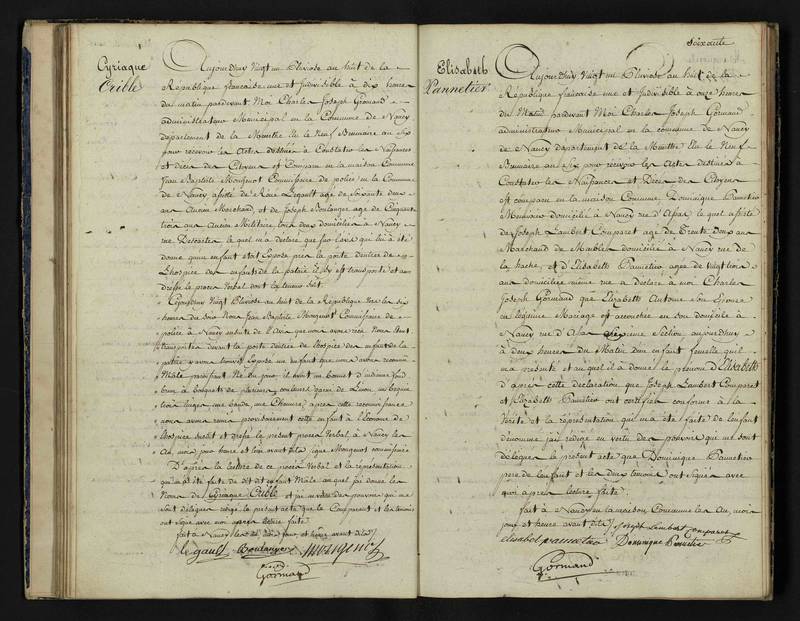 Cyriaque
Crible
Aujourd'huy vingt un Pluviose an huit de la
République française une et Indivisible à dix heures
du matin pardevant Moi Charles Joseph Gormand
administrateur Municipal en la Commune de Nancy
département de la Meurthe Elu le Neuf Brumaire an Six
pour recevoir les Actes destinés à Constater les Naissances
et décès des Citoyens est Comparu en la maison Commune
Jean Baptiste Mougenot Commissaire de police en la Commune
de Nancy assisté de René Legault agé de Soixante deux
ans Ancien Marchand, et de Joseph Boulanger age de Cinquante
trois ans Ancien Militaire, tous deux domiciliés à Nancy
rue Descartes le quel m'a déclaré que sur l'avis qui lui a été
donné qu'un enfant étoit Exposé près la porte d'entrée de
L'hospice des enfants de la patrie il s'y est transporté et a
dressé le procès Verbal dont la teneur suit
Cejourdhuy Vingt Pluviose an huit de la République vers les six
heures du soir Nous Jean Baptiste Mougenot Commissaire de
police à Nancy ensuite de l'Avis que nous avons reçu Nous étant
transporté devant la porte d'entrée de l'hospice des enfants de la
patrie y avons trouvé Exposé un enfant que nous avons reconnu
Mâle paroissant Né du jour, il avoit un bonnet d'indienne fond
brun à bouquets de plusieurs couleurs garni de Linon
trois langes une bande, une Chemise, après cette reconnoissance
nous avons remis provisoirement cette enfant à l'économe de
l'hospice susdit et dressé le présent procès Verbal, à Nancy les
An, mois jour heure et lieu avant dits Signé Mougenot commissaire
D'après la lecture de ce procès Verbal et la représentation
qui m'a été faite du dit enfant Mâle auquel j'ai donné les
Noms de Cyriaque Crible et j'ai en vertu des pouvoirs qui me
sont délégués rédigé le présent acte que le Comparant et les témoins
ont signé avec moi après lecture faite
fait à Nancy les an mois jour, et heure avant dits
Legault Boulanger Mougenot
Gormand
Soixante
Elisabeth
Pannetier
Aujourd'huy vingt un Pluviose an huit de la
République française une et Indivisible à onze heures
du Matin pardevant Moi Charles Joseph Gormand
administrateur Municipal en la commune de Nancy
de Nancy département de la Meurthe Elu le Neuf
Brumaire an Six pour recevoir les Actes destinés à
Constater les Naissances et Décès des Citoyens
est comparu en la maison Commune Dominique Pannetier
Menuisier domicilié à Nancy rue d'Assas le quel assisté
de Joseph Lambert Comparet age de Trente Deux ans
Marchand de Meubles domicilié à Nancy rue de
la hache, et d'Elisabeth Pannetier agée de vingt trois
ans domiciliée même rue a déclaré à moi Charles
Joseph Gormand que Elizabeth Antoine son Epouse
en légitime Mariage est accouchée en son domicile à
Nancy rue d'Assas Sixieme Section aujourd'huy
à deux heures du Matin d'un enfant femelle qu'il
m'a présenté et auquel il a donné le prénom d'Elisabeth
d'après cette déclaration que Joseph Lambert Comparet
et Elizabeth Pannetier ont certifiés conforme à la
Vérité et la représentation qui m'a été faite de l'enfant
dénommé j'ai rédigé en vertu des pouvoirs qui me sont
délégués le présent acte que Dominique Pannetier
père de l'enfant et les deux témoins ont signés avec
moi après lecture faite
fait à Nancy en la maison Commune les An, mois
jour et heure avant dits Joseph Lambert Comparet
elisabet pannetier Dominique Pannetier
Gormand